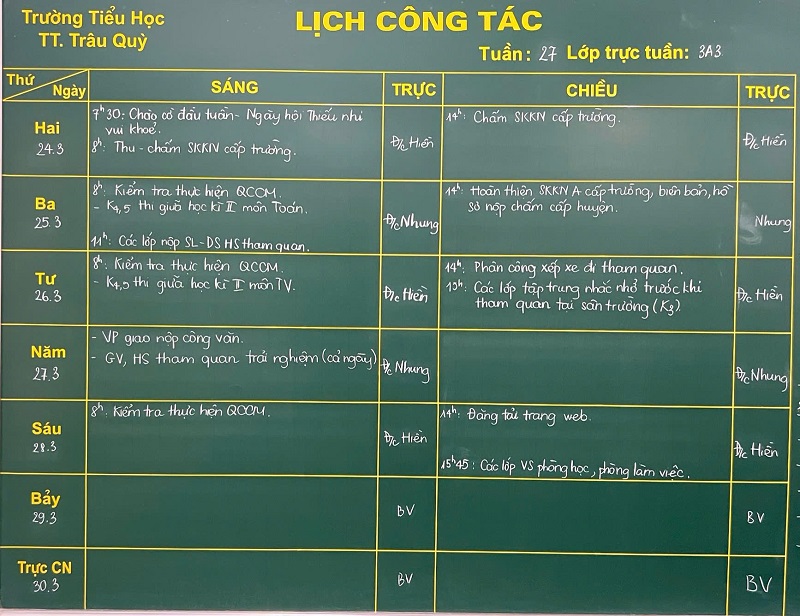 Trường Tiểu Học
TT. Trâu Quỳ
LỊCH CÔNG TÁC
Tuần: 27 Lớp trực tuần: 3A3
Thứ
Ngày
SÁNG
TRỰC
CHIỀU
TRỰC
Hai
24.3
7h30: Chào cờ đầu tuần - Ngày hội Thiếu nhi
vui khoẻ.
8h: Thu - chấm SKKN cấp trường.
Đ/c Hiền
14h: Chấm SKKN cấp trường.
Đ/c Hiền
Ba
25.3
8h: Kiểm tra thực hiện QCCM.
- K4,5 thi giữa học kì II môn Toán.
11h: Các lớp nộp SL-DS HS tham quan.
Đ/c Nhung
14h: Hoàn thiện SKKN A cấp trường, biên bản, hồ
sơ nộp chấm cấp huyện.
Nhung
Tư
26.3
8h: Kiểm tra thực hiện QCCM.
- K4,5 thi giữa học kì II môn TV.
Đ/c Hiền
14h: Phân công xếp xe đi tham quan.
15h: Các lớp tập trung nhắc nhở trước khi
tham quan tại sân trường (K3).
Đ/c Hiền
Năm
27.3
- VP giao nộp công văn.
- GV, HS tham quan trải nghiệm (cả ngày)
Đ/c Nhung
Đ/c Nhung
Sáu
28.3
8h: Kiểm tra thực hiện QCCM.
Đ/c Hiền
14h: Đăng tải trang web.
15h45: Các lớp VS phòng học, phòng làm việc.
Đ/c Hiền
Bảy
29.3
BV
BV
Trực CN
30.3
BV
BV